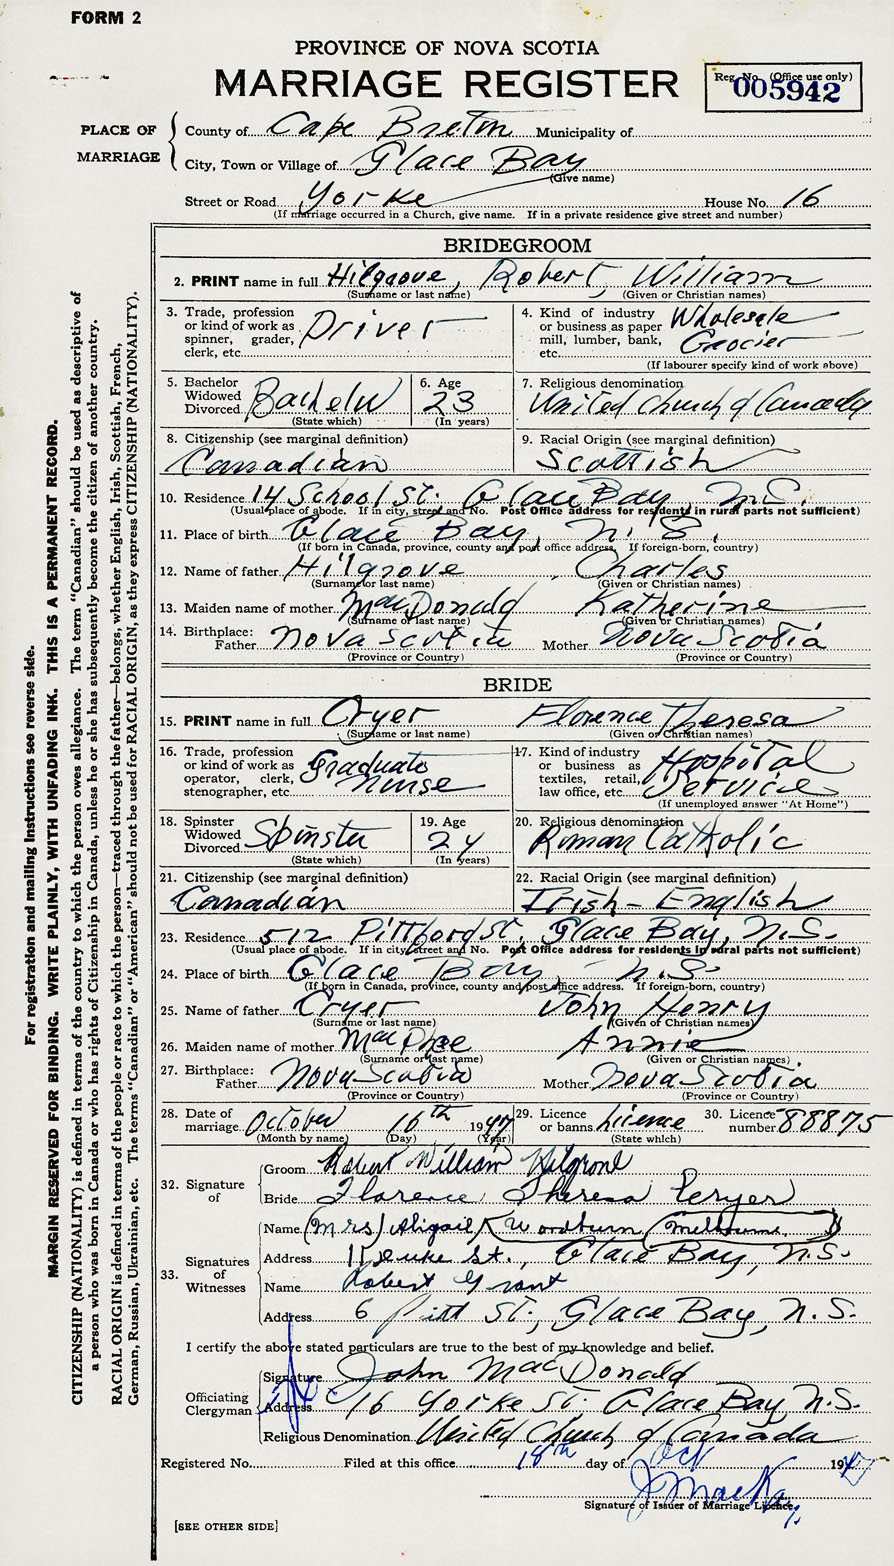 FORM 2
PROVINCE OF NOVA SCOTIA
MARRIAGE REGISTER
Reg. No. (Office use only)
005942
PLACE OF MARRIAGE
County of Cape Breton Municipality of
City, Town or Village of Glace Bay
(Give name)
Street or Road Yorke House No. 16
(If marriage occurred in a Church, give name. If in a private residence give street and number)
BRIDEGROOM
2. PRINT name in full Hilgrove, Robert, William
(Surname or last name) (Given or Christian names)
3. Trade, profession or kind of work as spinner, grader, clerk, etc. Driver
4. Kind of industry or business as paper mill, lumber, bank, etc. Wholesale Grocier
(If labourer specify kind of work above)
5. Bachelor Widowed Divorced Bachelor
(State which)
6. Age 23
(In years)
7. Religious denomination
United Church of Canada
8. Citizenship (see marginal definition)
Canadian
9. Racial Origin (see marginal definition)
Scottish
10. Residence 14 School St. Glace Bay N.S.
(Usual place of abode. If in city, street and No. Post Office address for residents in rural parts not sufficient)
11. Place of birth Glace Bay, N.S.
(If born in Canada, province, county and post office address. If foreign-born, country)
12. Name of father Hilgrove, Charles
(Surname or last name) (Given or Christian names)
13. Maiden name of mother MacDonald Katherine
(Surname or last name) (Given or Christian names)
14. Birthplace: Father Nova Scotia Mother Nova Scotia
(Province or Country) (Province or Country)
BRIDE
15. PRINT name in full Cryer Florence Theresa
(Surname or last name) (Given or Christian names)
16. Trade, profession or kind of work as operator, clerk, stenographer, etc. Graduate Nurse
17. Kind of industry or business as textiles, retail, law office, etc. Hospital Service
(If unemployed answer "At Home")
18. Spinster Widowed Divorced Spinster
(State which)
19. Age 24
(In years)
20. Religious denomination
Roman Catholic
21. Citizenship (see marginal definition)
Canadian
22. Racial Origin (see marginal definition)
Irish - English
23. Residence 512 Pittford St, Glace Bay, N.S.
(Usual place of abode. If in city, street and No. Post Office address for residents in rural parts not sufficient)
24. Place of birth Glace Bay, N.S.
(If born in Canada, province, county and post office address. If foreign-born, country)
25. Name of father Cryer John Henry
(Surname or last name) (Given or Christian names)
26. Maiden name of mother MacPhee Annie
(Surname or last name) (Given or Christian names)
27. Birthplace: Father Nova Scotia Mother Nova Scotia
(Province or Country) (Province or Country)
28. Date of marriage October 16th 1947
(Month by name) (Day) (Year)
29. Licence or banns Licence
(State which)
30. Licence number 88875
32. Signature of
Groom Robert William Hilgrove
Bride Florence Theresa Cryer
33. Signatures of Witnesses
Name (Mrs) Abigail Woodburn (Melbourne)
Address 11 Duke St., Glace Bay, N.S.
Name Robert Grant
Address 6 Pitt St., Glace Bay, N.S.
I certify the above stated particulars are true to the best of my knowledge and belief.
Officiating Clergyman
Signature John MacDonald
Address 16 Yorke St. Glace Bay N.S.
Religious Denomination United Church of Canada
Registered No. Filed at this office 18th day of Oct 1947
J MacKay
Signature of Issuer of Marriage Licence.
[SEE OTHER SIDE]
For registration and mailing instructions see reverse side.
MARGIN RESERVED FOR BINDING. WRITE PLAINLY, WITH UNFADING INK. THIS IS A PERMANENT RECORD.
CITIZENSHIP (NATIONALITY) is defined in terms of the country to which the person owes allegiance. The term "Canadian" should be used as descriptive of
a person who was born in Canada or who has rights of Citizenship in Canada, unless he or she has subsequently become the citizen of another country.
RACIAL ORIGIN is defined in terms of the people or race to which the person—traced through the father—belongs, whether English, Irish, Scottish, French,
German, Russian, Ukrainian, etc. The terms "Canadian" or "American" should not be used for RACIAL ORIGIN, as they express CITIZENSHIP (NATIONALITY).